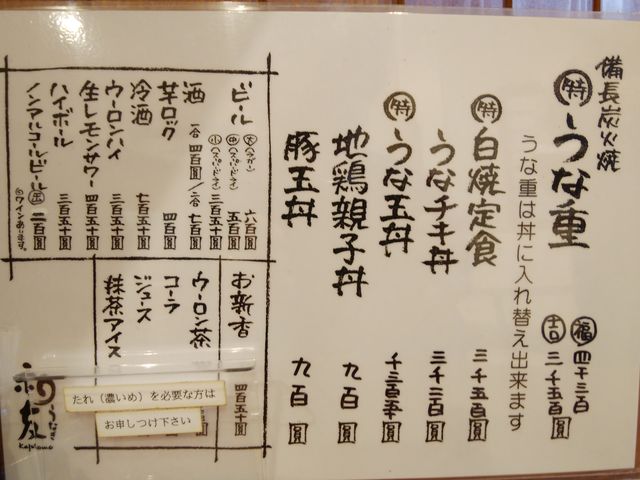 備長炭火焼
特 うな重
福 四千三百
吉 三千五百圓
うな重は丼に入れ替え出来ます
特 白焼定食 三千五百圓
うなチキ丼 三千三百圓
特 うな玉丼
地鶏親子丼 九百圓
豚玉丼 九百圓
ビール
大 六百圓
中 (スーパードライ) 五百圓
小 (スーパードライ) 三百五十圓
酒 一合 四百圓/二合 七百圓
芋ロック 四百圓
冷酒 七百圓
ウーロンハイ 三百五十圓
生レモンサワー 四百五十圓
ハイボール 三百五十圓
ノンアルコールビール 二百圓
ワインあります。
お新香 四百五十圓
ウーロン茶
コーラ
ジュース
抹茶アイス
たれ（濃いめ）を必要な方は
お申しつけ下さい
うなぎ
和友